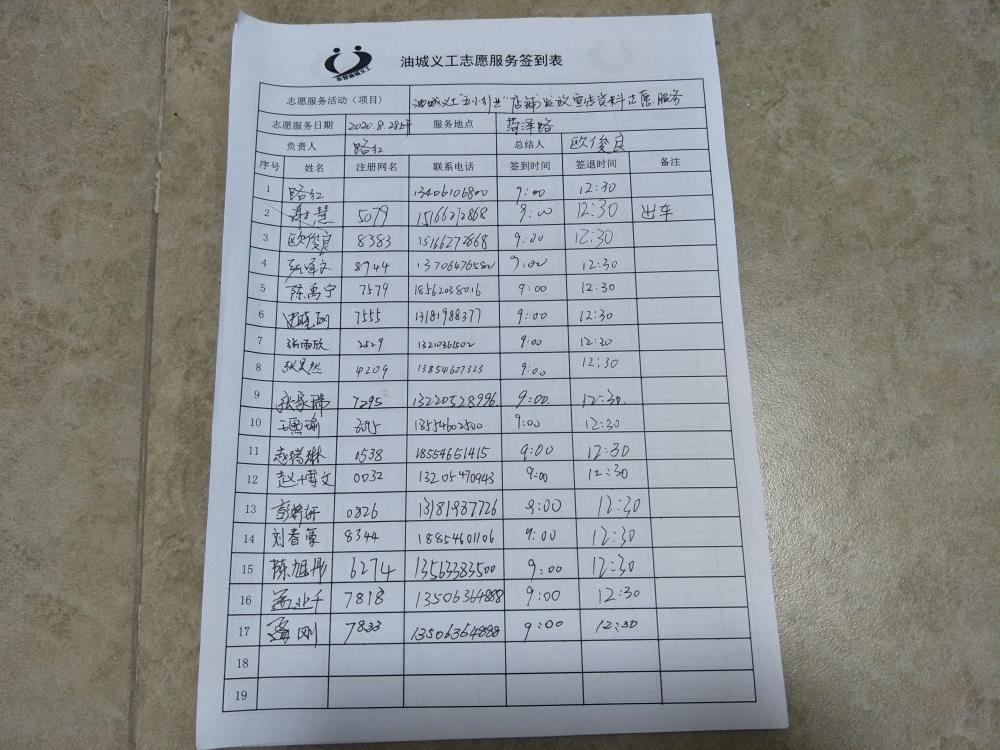 油城义工志愿服务签到表
志愿服务活动（项目） 油城义工"五小行业"店铺发放宣传资料志愿服务
志愿服务日期 2020.8.28 服务地点 菏泽路
负责人 路红 总结人 欧俊良
序号 姓名 注册网名 联系电话 签到时间 签退时间 备注
1 路红 13406106800 9:00 12:30
2 谢慧 5079 15166272868 9:00 12:30 出车
3 欧俊良 8383 15166272868 9:00 12:30
4 8944 13706476580 9:00 12:30
5 陈禹宁 7579 18562038016 9:00 12:30
6 7555 13181988377 9:00 12:30
7 张雨欣 2529 9:00 12:30
8 4209 13854627323 9:00 12:30
9 张家瑞 7295 13220528996 9:00 12:30
10 18554602500 9:00 12:30
11 0538 18554651415 9:00 12:30
12 赵博文 0032 13205470943 9:00 12:30
13 0826 13181937726 9:00 12:30
14 8344 18854601106 9:00 12:30
15 陈旭彤 6274 13563383500 9:00 12:30
16 7818 13506364888 9:00 12:30
17 7833 13506364888 9:00 12:30
18
19